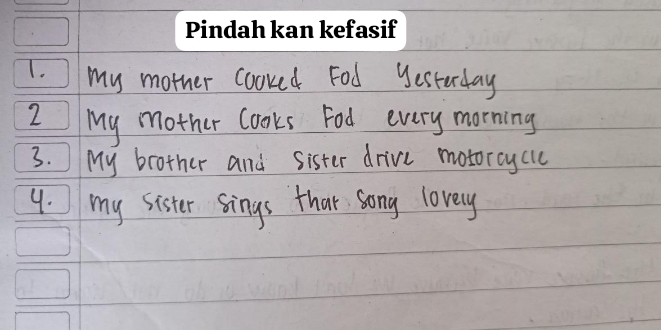 Pindah kan kefasif
1. My mother Cooked Fod Yesterday
2 My Mother Cooks Fod every morning
3. My brother and Sister drive motorcycle
4. My Sister Sings that Song lovely